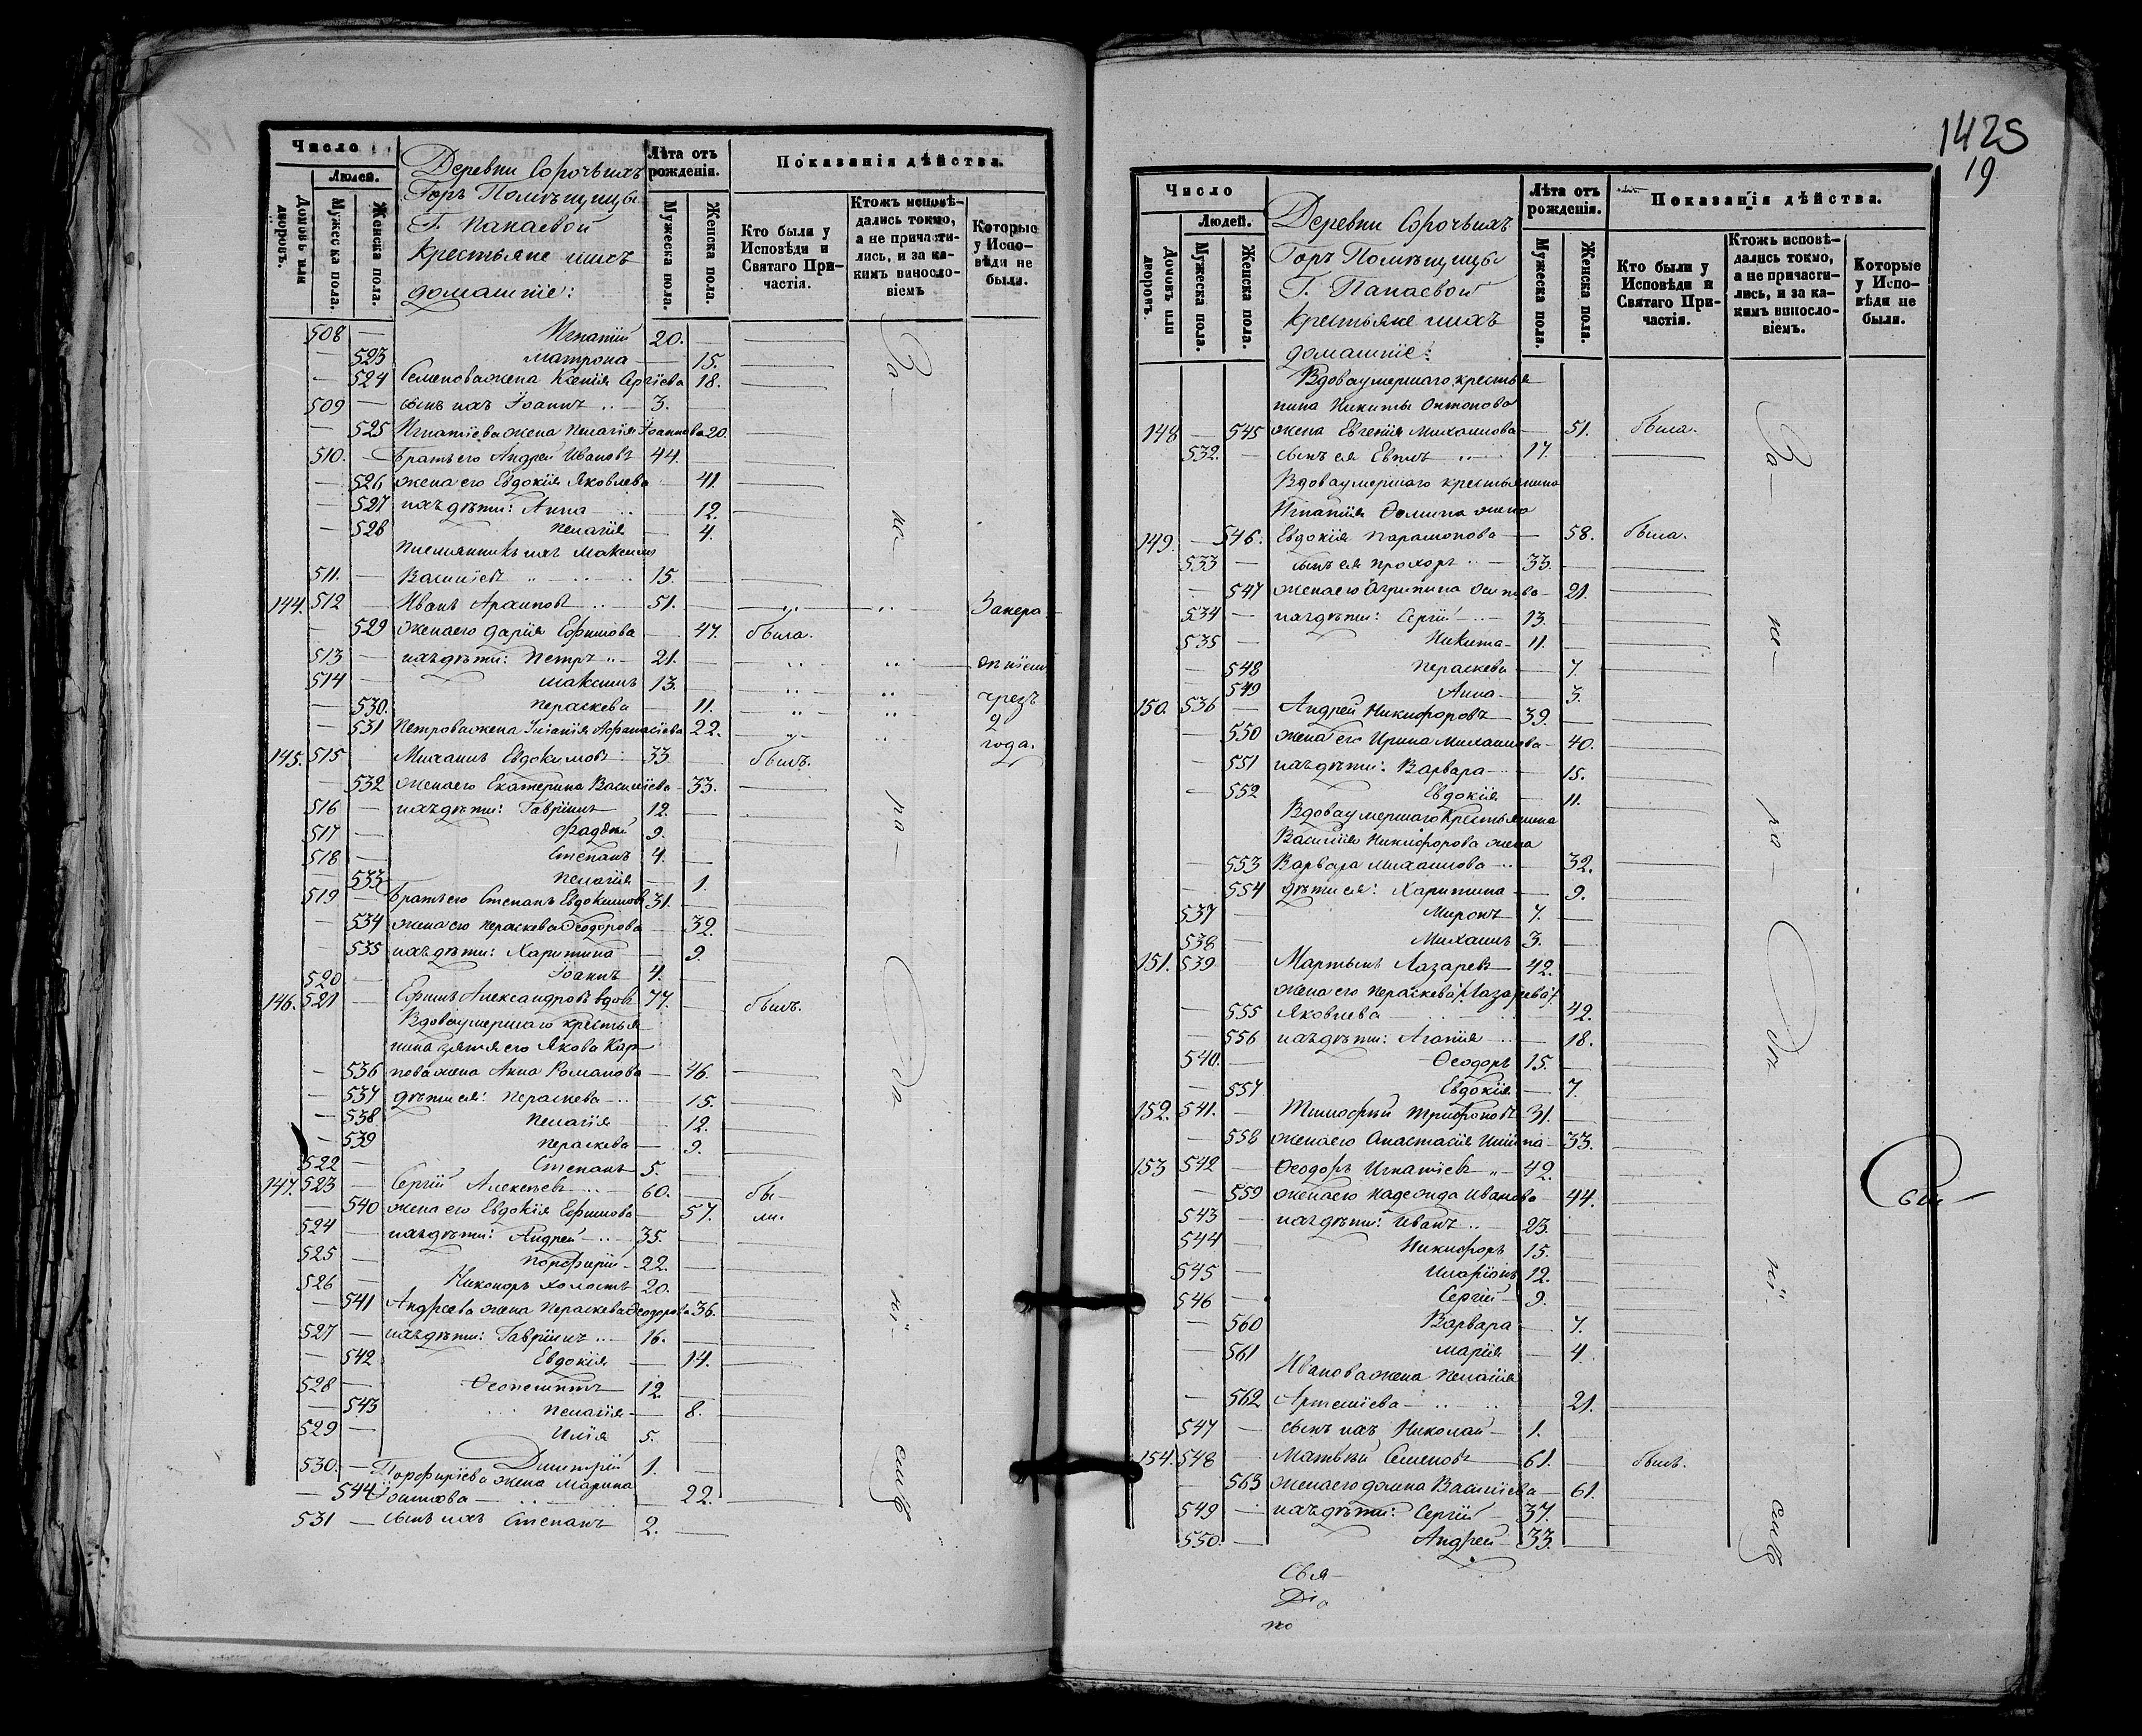 Число
Людей.
Домовъ или дворовъ.
Мужеска пола.
Женска пола.
Деревни Сорочьихъ
Горъ Помѣщицы
Г. Панаевой
Крестьяне и ихъ
домашніе:
Лѣта отъ рожденія.
Мужеска пола.
Женска пола.
Показанія дѣйства.
Кто были у Исповѣди и Святаго Причастія.
Ктожъ исповѣдались токмо, а не причастились, и за какимъ винословіемъ
Которые у Исповѣди не были.
508 — Игнатій 20. —
— 523 Матрона — 15.
— 524 Семенова жена Ксенія Сергіева 18.
509 — сынъ ихъ Іоаннъ 3. —
— 525 Игнатіева жена Пелагія Іоаннова 20.
510. — Братъ его Андрей Ивановъ 44. —
— 526 жена его Евдокія Яковлева 41.
— 527 ихъ дѣти: Анна — 12.
— 528 Пелагія — 4.
Племянникъ ихъ Максимъ
511. — Васильевъ 15. —
144. 512 — Иванъ Архиповъ 51. —
— 529 жена его Дарія Ефимова 47. была.
513 — ихъ дѣти: Петръ 21. —
514 — Максимъ 13. —
— 530. Пераскева — 11. чрезъ
— 531 Петрова жена Афанасіева 22. 2
года.
145. 515 Михаилъ Евдокимовъ 33 былъ.
— 532 жена его Екатерина Васильева 33.
516 — ихъ дѣти: Гавріилъ 12. —
517 — Фадѣй 9. —
518 — Стефанъ 4. —
— 533 Пелагія — 1.
519 — Братъ его Степанъ Евдокимовъ 31. —
— 534 жена его Пераскева Ѳеодорова 32.
— 535 ихъ дѣти: Харитина — 9
520 — Іоаннъ 4. —
146. 521 — Ефимъ Александровъ вдовъ 77. — былъ.
Вдова умершаго крестья
нина зятя его Якова Кар
— 536 пова жена Анна Романова — 46.
— 537 дѣти ея: Пераскева — 15.
— 538 Пелагія — 12.
— 539 Пераскева — 9.
522 — Степанъ 5. —
147. 523 — Сергій Алексѣевъ 60. — бы
— 540 жена его Евдокія Ефимова 57. ли.
524 — ихъ дѣти: Андрей 35. —
525 — Порфирій 22. —
526 — Никоноръ холостъ 20. —
— 541 Андреева жена Пераскева Ѳеодорова 36.
527 — ихъ дѣти: Гавріилъ 16. —
— 542 Евдокія — 14.
528 — Ѳеопемптъ 12. —
— 543 Пелагія — 8.
529 — Илія 5. —
530. — Димитрій 1. —
Порфиріева жена Марина
— 544 22.
531 — сынъ ихъ Степанъ 2. —
За не ра дѣ ні емъ
1425
19
Число
Людей.
Домовъ или дворовъ.
Мужеска пола.
Женска пола.
Деревни Сорочьихъ
Горъ Помѣщицы
Г. Панаевой
Крестьяне и ихъ
домашніе:
Лѣта отъ рожденія.
Мужеска пола.
Женска пола.
Показанія дѣйства.
Кто были у Исповѣди и Святаго Причастія.
Ктожъ исповѣдались токмо, а не причастились, и за какимъ винословіемъ.
Которые у Исповѣди не были.
Вдова умершаго крестья
нина Никиты Антонова
148 — 545 жена Евгенія Михаилова — 51. была.
532. — сынъ ея 17. —
Вдова умершаго крестьянина
Игнатія Ѳомина жена
149. — 546. Евдокія Парамонова — 58. была.
533 — сынъ ея Прохоръ 33. —
— 547 жена его Агрипина Осипова 21.
534 — ихъ дѣти: Сергій 13. —
535 — Никита 11. —
— 548 Пераскева — 7.
549 Анна — 3.
150. 536 — Андрей Никифоровъ 39. —
— 550 жена его Ирина Михаилова 40.
— 551 ихъ дѣти: Варвара — 15.
— 552 Евдокія — 11.
Вдова умершаго Крестьянина
Василія Никифорова жена
— 553 Варвара Михаилова 32.
— 554 дѣти ея: Харитина — 9.
537 — Миронъ 7. —
538 — Михаилъ 3. —
151. 539 — Мартынъ Лазаревъ 42. —
жена его Пераскева /Лазарева/
— 555 Яковлева 42.
— 556 ихъ дѣти: Агапія — 18.
540. — Ѳеодоръ 15. —
— 557 Евдокія — 7.
152. 541. — Тимофей Трифоновъ 31. —
— 558 жена его Анастасія Ильина 33.
153 542 — Ѳеодоръ Игнатіевъ 42. —
— 559 жена его Надежда Иванова 44.
543 — ихъ дѣти: Иванъ 23. —
544 — Никифоръ 15. —
545 — Иларіонъ 12. —
546 — Сергій 9. —
— 560 Варвара — 7.
— 561 Марія — 4.
Иванова жена Пелагія
— 562 Артемьева 21.
547 — сынъ ихъ Николай 1. —
154. 548 — Матвѣй Семеновъ 61. — былъ.
— 563 жена его Домна Васильева 61.
549 — ихъ дѣти: Сергій 37. —
550. — Андрей 33. —
За не ра дѣ ні емъ
Свя
Діа
по